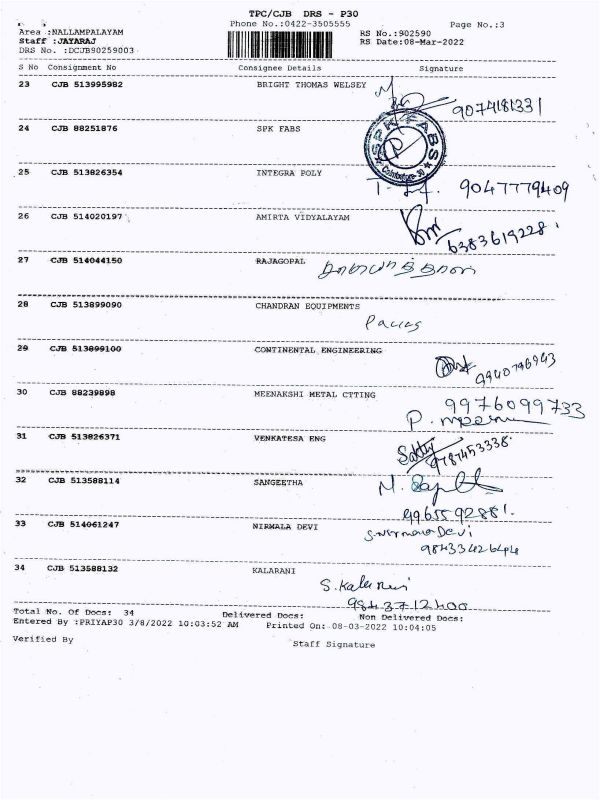 TPC/CJB DRS - P30
Phone No.:0422-3505555 Page No.:3
Area :NALLAMPALAYAM RS No.:902590
Staff :JAYARAJ RS Date:08-Mar-2022
DRS No. :DCJB90259003
S No Consignment No Consignee Details Signature
23 CJB 513995982 BRIGHT THOMAS WELSEY
9074181331
24 CJB 88251876 SPK FABS
SPK FABS
Coimbatore-30
25 CJB 513826354 INTEGRA POLY
9047779409
26 CJB 514020197 AMIRTA VIDYALAYAM
6383619228
27 CJB 514044150 RAJAGOPAL
28 CJB 513899090 CHANDRAN EQUIPMENTS
29 CJB 513899100 CONTINENTAL ENGINEERING
9940796943
30 CJB 88239898 MEENAKSHI METAL CTTING
9976099733
31 CJB 513826371 VENKATESA ENG
9787453338
32 CJB 513588114 SANGEETHA
9965592881
33 CJB 514061247 NIRMALA DEVI
S. Nirmala Devi
34 CJB 513588132 KALARANI
S. Kalarani
9843712400
Total No. Of Docs: 34 Delivered Docs: Non Delivered Docs:
Entered By :PRIYAP30 3/8/2022 10:03:52 AM Printed On: 08-03-2022 10:04:05
Verified By Staff Signature